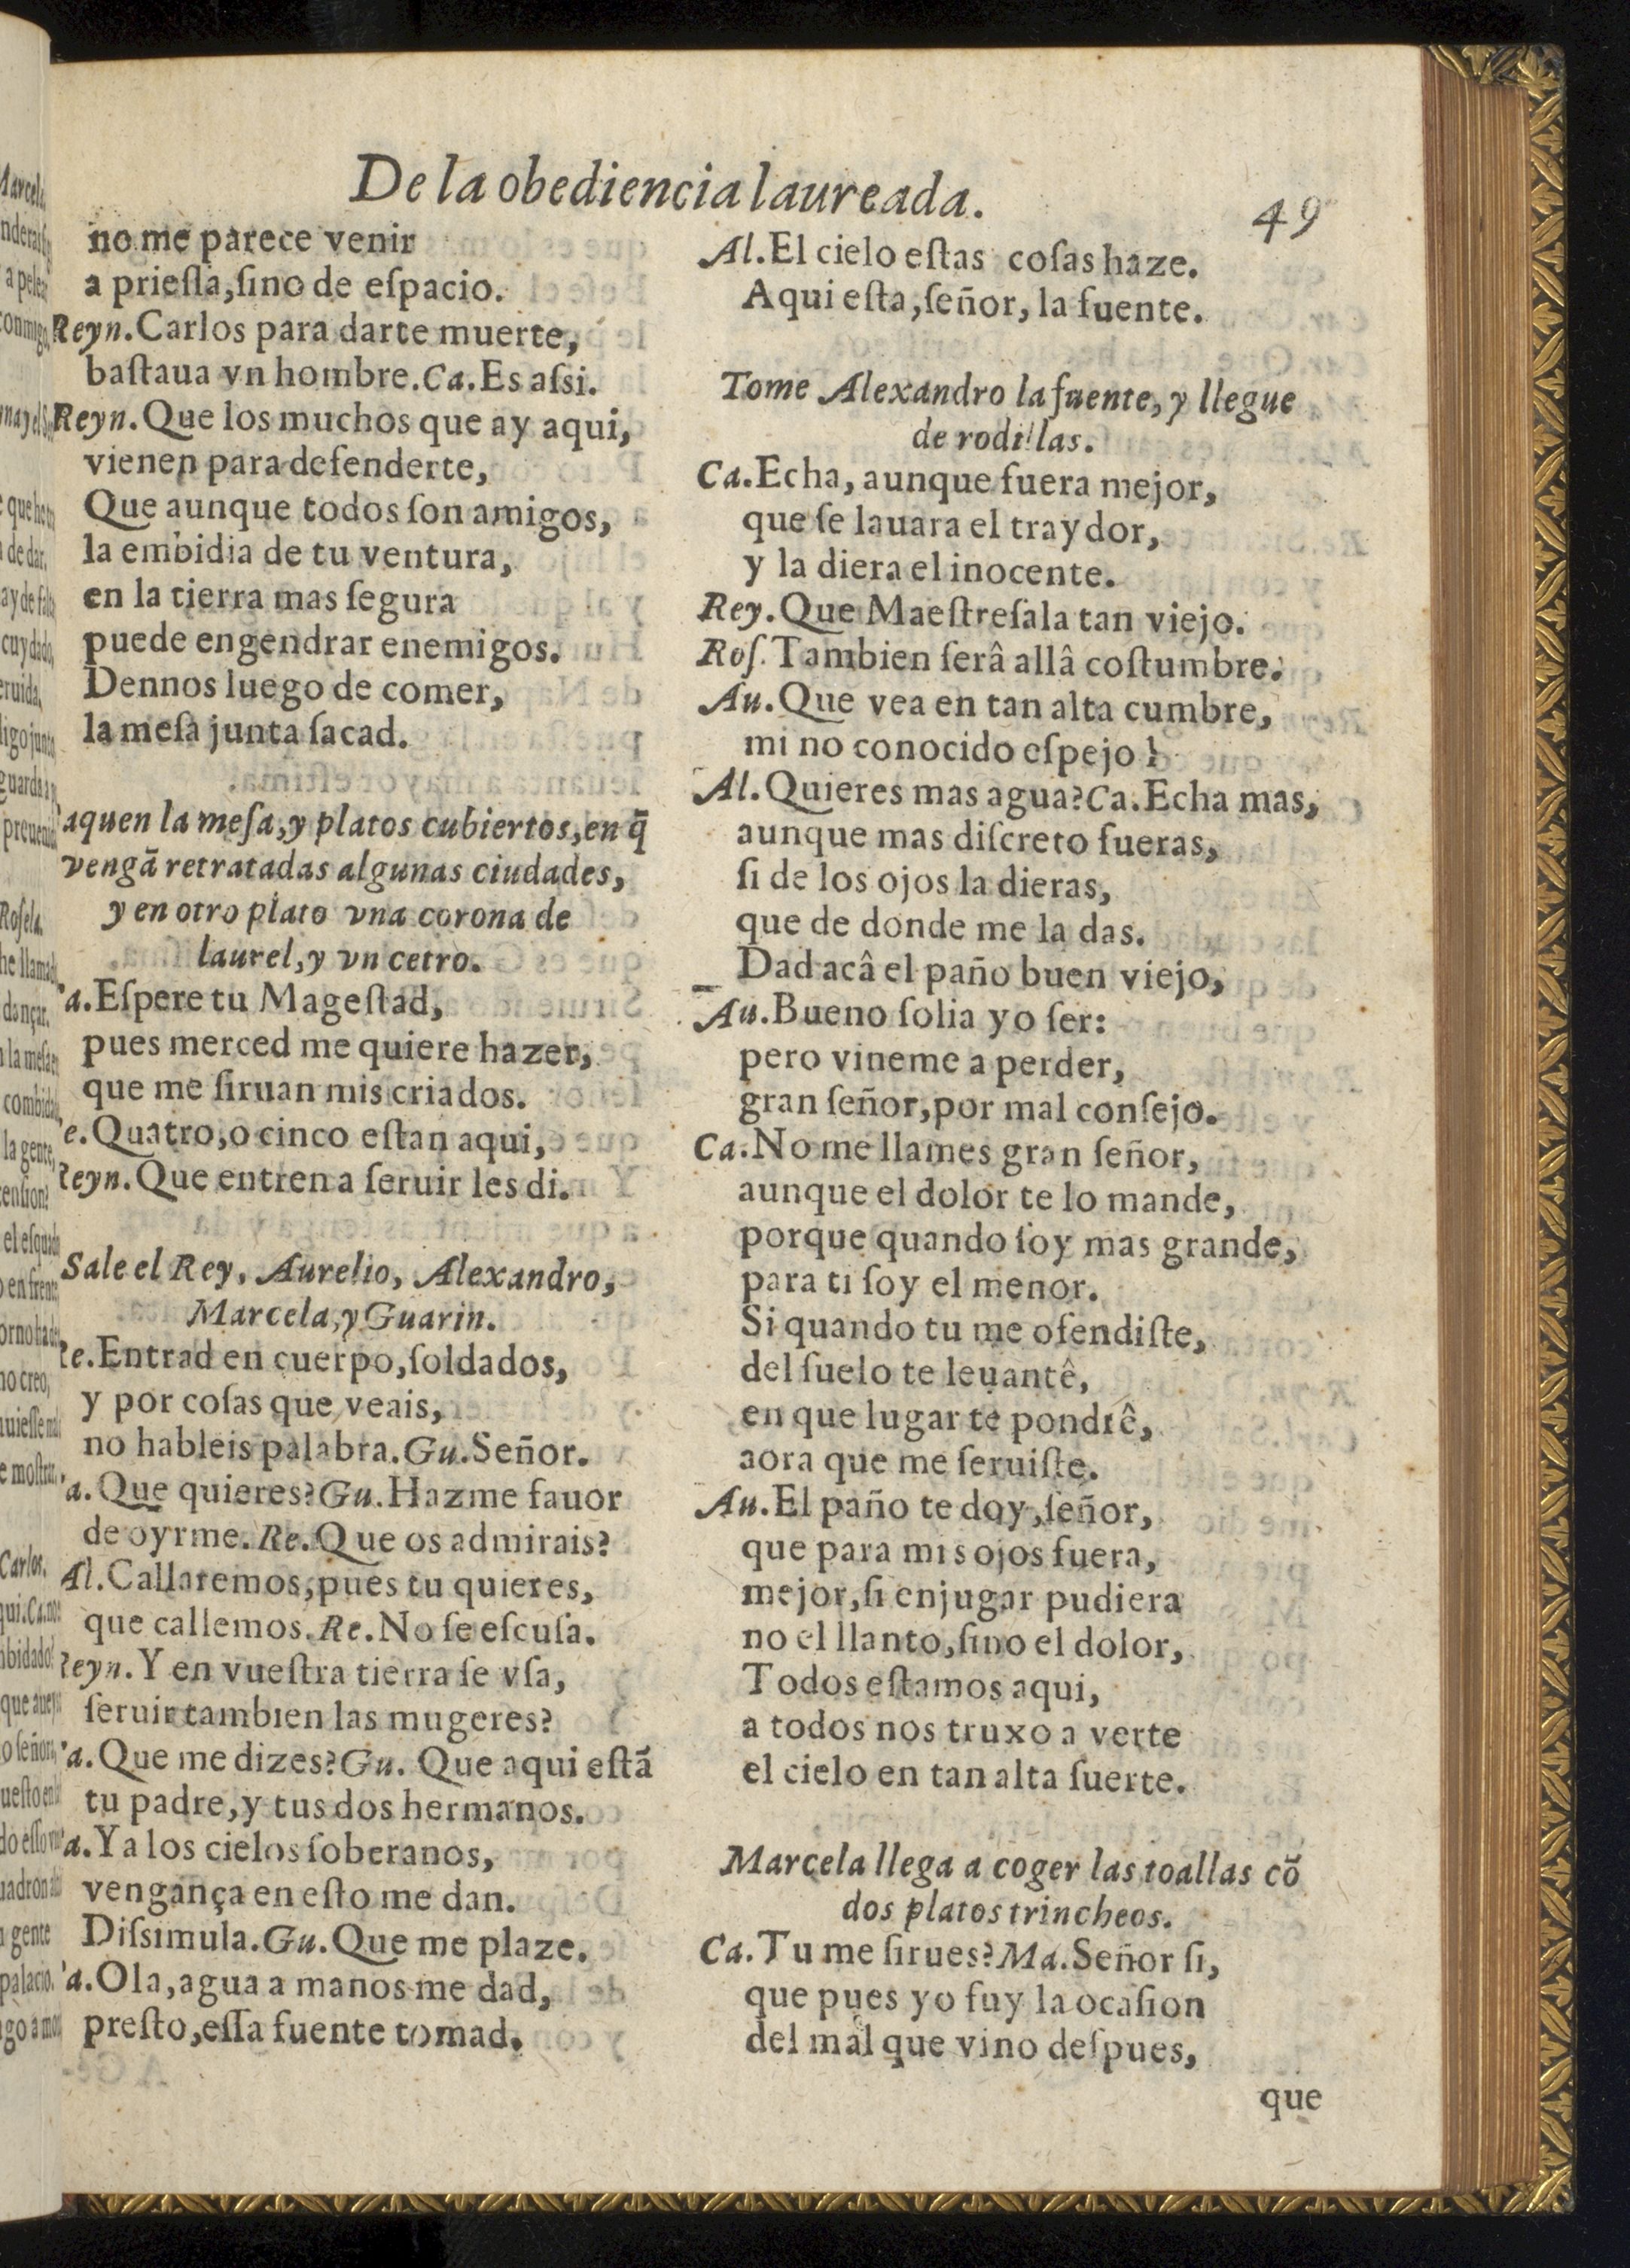 De la obediencia laureada.
49
no me parece venir
a priessa, sino de espacio.
Reyn. Carlos para darte muerte,
bastaua vn hombre. Ca. Es assi.
Reyn. Que los muchos que ay aqui,
vienen para defenderte,
Que aunque todos son amigos,
la embidia de tu ventura,
en la tierra mas segura
puede engendrar enemigos.
Dennos luego de comer,
la mesa junta sacad.
aquen la mesa, y platos cubiertos, en q̃
vengã retratadas algunas ciudades,
y en otro plato vna corona de
laurel, y vn cetro.
a. Espere tu Magestad,
pues merced me quiere hazer,
que me siruan mis criados.
e. Quatro, o cinco estan aqui,
Reyn. Que entren a seruir les di.
Sale el Rey, Aurelio, Alexandro,
Marcela, y Guarin.
Re. Entrad en cuerpo, soldados,
y por cosas que veais,
no hableis palabra. Gu. Señor.
a. Que quieres? Gu. Hazme fauor
de oyrme. Re. Que os admirais?
Al. Callaremos, pues tu quieres,
que callemos. Re. No se escusa.
Reyn. Y en vuestra tierra se vsa,
seruir tambien las mugeres?
a. Que me dizes? Gu. Que aqui estã
tu padre, y tus dos hermanos.
a. Ya los cielos soberanos,
vengança en esto me dan.
Dissimula. Gu. Que me plaze.
a. Ola, agua a manos me dad,
presto, essa fuente tomad.
Al. El cielo estas cosas haze.
Aqui esta, señor, la fuente.
Tome Alexandro la fuente, y llegue
de rodillas.
Ca. Echa, aunque fuera mejor,
que se lauara el traydor,
y la diera el inocente.
Rey. Que Maestresala tan viejo.
Ros. Tambien serâ allâ costumbre.
Au. Que vea en tan alta cumbre,
mi no conocido espejo!
Al. Quieres mas agua? Ca. Echa mas,
aunque mas discreto fueras,
si de los ojos la dieras,
que de donde me la das.
Dad acâ el paño buen viejo,
Au. Bueno solia yo ser:
pero vineme a perder,
gran señor, por mal consejo.
Ca. No me llames gran señor,
aunque el dolor te lo mande,
porque quando soy mas grande,
para ti soy el menor.
Si quando tu me ofendiste,
del suelo te leuantê,
en que lugar te pondrê,
aora que me seruiste.
Au. El paño te doy, señor,
que para mis ojos fuera,
mejor, si enjugar pudiera
no el llanto, sino el dolor,
Todos estamos aqui,
a todos nos truxo a verte
el cielo en tan alta suerte.
Marcela llega a coger las toallas cõ
dos platos trincheos.
Ca. Tu me sirues? Ma. Señor si,
que pues yo fuy la ocasion
del mal que vino despues,
que